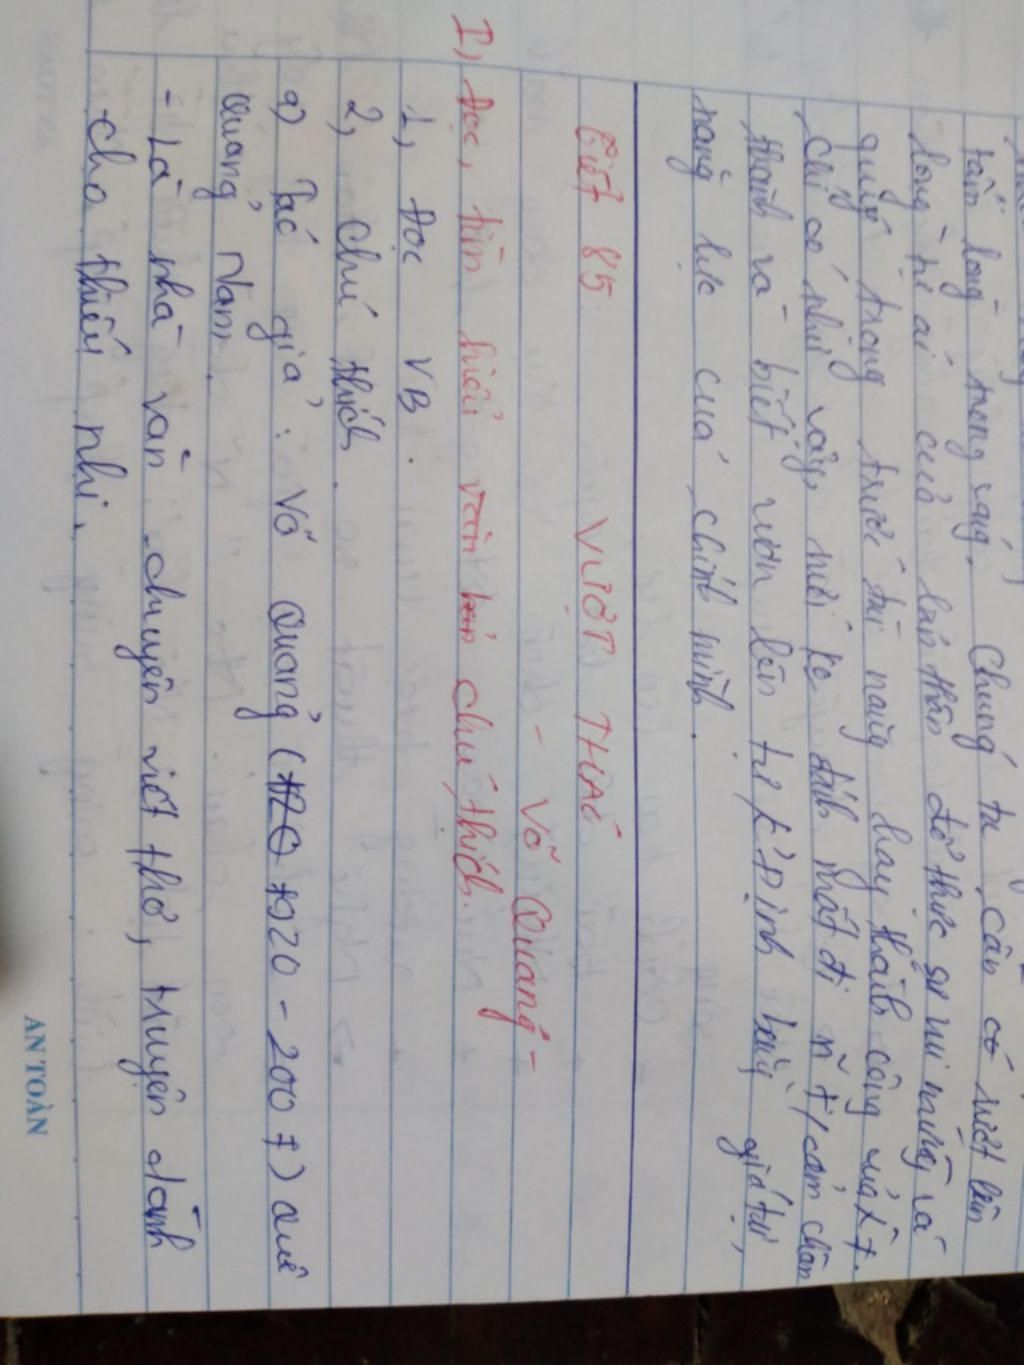 tấm lòng trong sáng. Chúng ta cần có vượt lên
lòng tự ái của bản thân để thực sự vui mừng và
quý trọng trước tài năng hay thành công của
chỉ có như vậy, mới ko đánh mất đi n t/cảm chân
thành và biết vươn lên tự k.định bằng giá trị,
năng lực của chính mình.
Tiết 85 VƯỢT THÁC
- Võ Quảng -
I, Đọc, tìm hiểu văn bản chú thích.
1, Đọc VB.
2, chú thích.
a) Tác giả: Võ Quảng (1920 - 2007) quê
Quảng Nam.
- Là nhà văn chuyên viết thơ, truyện dành
cho thiếu nhi.
AN TOÀN